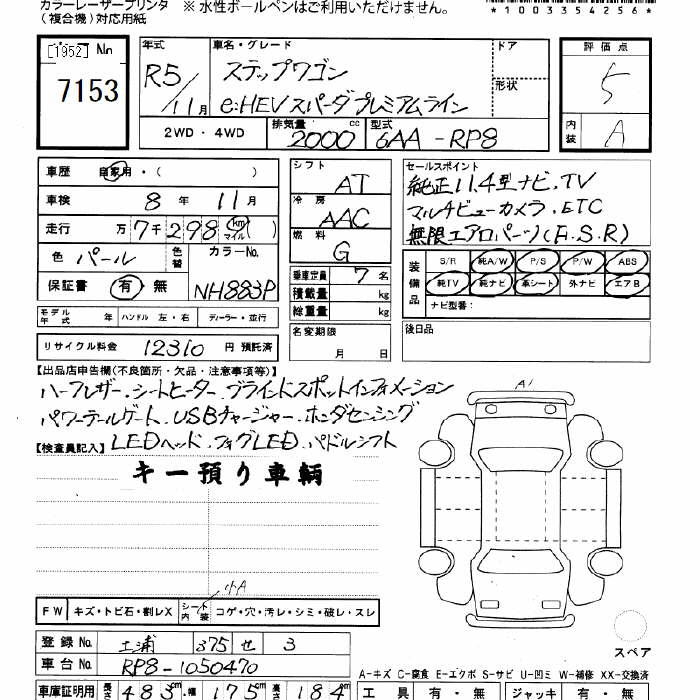 カラーレーザープリンタ
(複合機)対応用紙
※ 水性ボールペンはご利用いただけません。
*1003354256*
No
[1952]
7153
年式
R5/11月
車名・グレード
ステップワゴン
e:HEVスパーダプレミアムライン
ドア
形状
評価点
5
内装
A
2WD・4WD
排気量
2000 cc
型式
6AA-RP8
車歴 自家用・( )
車検 8年 11月
走行 7千298 km マイル ( )
色 パール 色替 カラーNo.
保証書 有・無 NH883P
シフト
AT
冷房
AAC
燃料
G
乗車定員 7名
積載量 kg
総重量 kg
名変期限
月 日
セールスポイント
純正11.4型ナビ.TV
マルチビューカメラ.ETC
無限エアロパーツ(F.S.R)
装備品
S/R 純A/W P/S P/W ABS
純TV 純ナビ 革シート 外ナビ エアB
ナビ型番:
後日品
モデル年式 年 ハンドル 左・右 ディーラー・並行
リサイクル料金 12310 円 預託済
【出品店申告欄(不良箇所・欠品・注意事項等)】
ハーフレザー.シートヒーター.ブラインドスポットインフォメーション
パワーテールゲート.USBチャージャー.ホンダセンシング
LEDヘッド.フォグLED.パドルシフト
【検査員記入】
キー預り車輌
A1
小A
FW キズ・トビ石・割レX シート内装 コゲ・穴・汚レ・シミ・破レ・スレ
スペア
登録No. 土浦 375 せ 3
車台No. RP8-1050470
A-キズ C-腐食 E-エクボ S-サビ U-凹ミ W-補修 XX-交換済
車庫証明用 長さ 483cm 幅 175cm 高さ 184
工具 有・無 ジャッキ 有・無